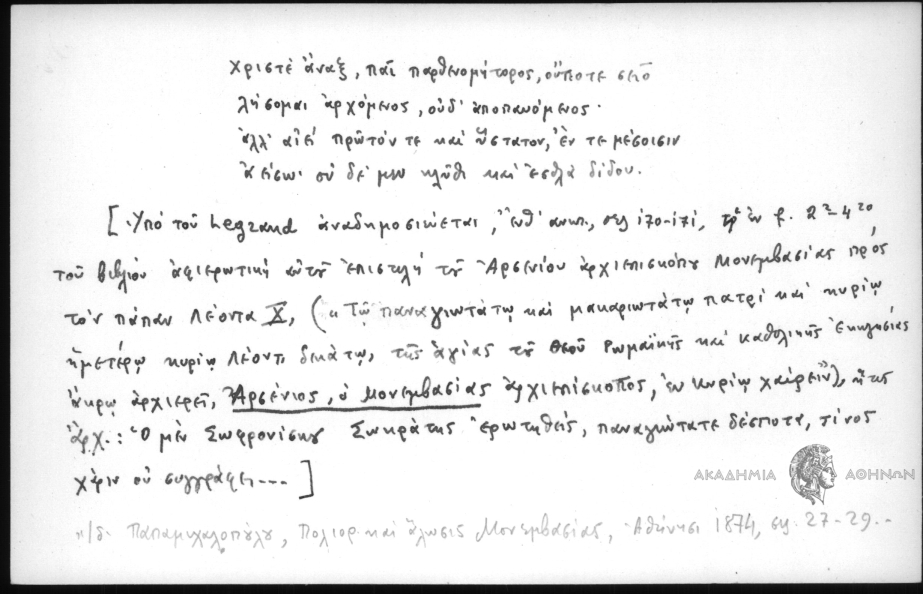 Χριστὲ ἄναξ, παῖ παρθενομήτορος, οὔποτε σεῖο
λήσομαι ἀρχόμενος, οὐδ' ἀποπαυόμενος·
ἀλλ' αἰεί πρῶτόν τε καὶ ὕστατον, ἔν τε μέσοισιν
ἀείσω· σὺ δέ μευ κλῦθι καὶ ἐσθλὰ δίδου.
[Ὑπό τοῦ Legrand ἀναδημοσιεύεται, ἔνθ' ἀνωτ., σελ 170-171, ἐν f. 2²-4²⁰
τοῦ βιβλίου ἀφιερωτική αὕτη ἐπιστολή τοῦ Ἀρσενίου ἀρχιεπισκόπου Μονεμβασίας πρός
τόν πάπαν Λέοντα X, («Τῷ παναγιωτάτῳ καὶ μακαριωτάτῳ πατρί καὶ κυρίῳ
ἡμετέρῳ κυρίῳ Λέοντι δεκάτῳ, τῆς ἁγίας τοῦ Θεοῦ Ρωμαϊκῆς καὶ καθολικῆς Ἐκκλησίας
ἄκρῳ ἀρχιερεῖ, Ἀρσένιος, ὁ Μονεμβασίας ἀρχιεπίσκοπος, ἐν κυρίῳ χαίρειν»), ἧς
ἀρχ.: Ὁ μὲν Σωφρονίσκου Σωκράτης ἐρωτηθείς, παναγιώτατε δέσποτα, τίνος
χάριν οὐ συγγράφει...]
ΑΚΑΔΗΜΙΑ ΑΘΗΝΩΝ
Παπαμιχαλοπούλου, Πολιορ. καὶ ἅλωσις Μονεμβασίας, Ἀθήνησι 1874, σελ. 27-29.-